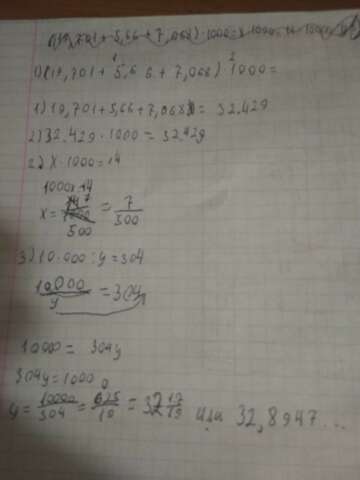 1)(19,701+5,66+7,068)·1000=
1) 19,701+5,66+7,068 = 32.429
2) 32.429·1000 = 32.429
2) X·1000=14
1000x=14
x= 14 7 / 1000 500 = 7/500
3) 10·000:y=304
10000/y = 304
10000= 304y
304y=10000
y= 10000/304 = 625/19 = 32 17/19 или 32,8947...